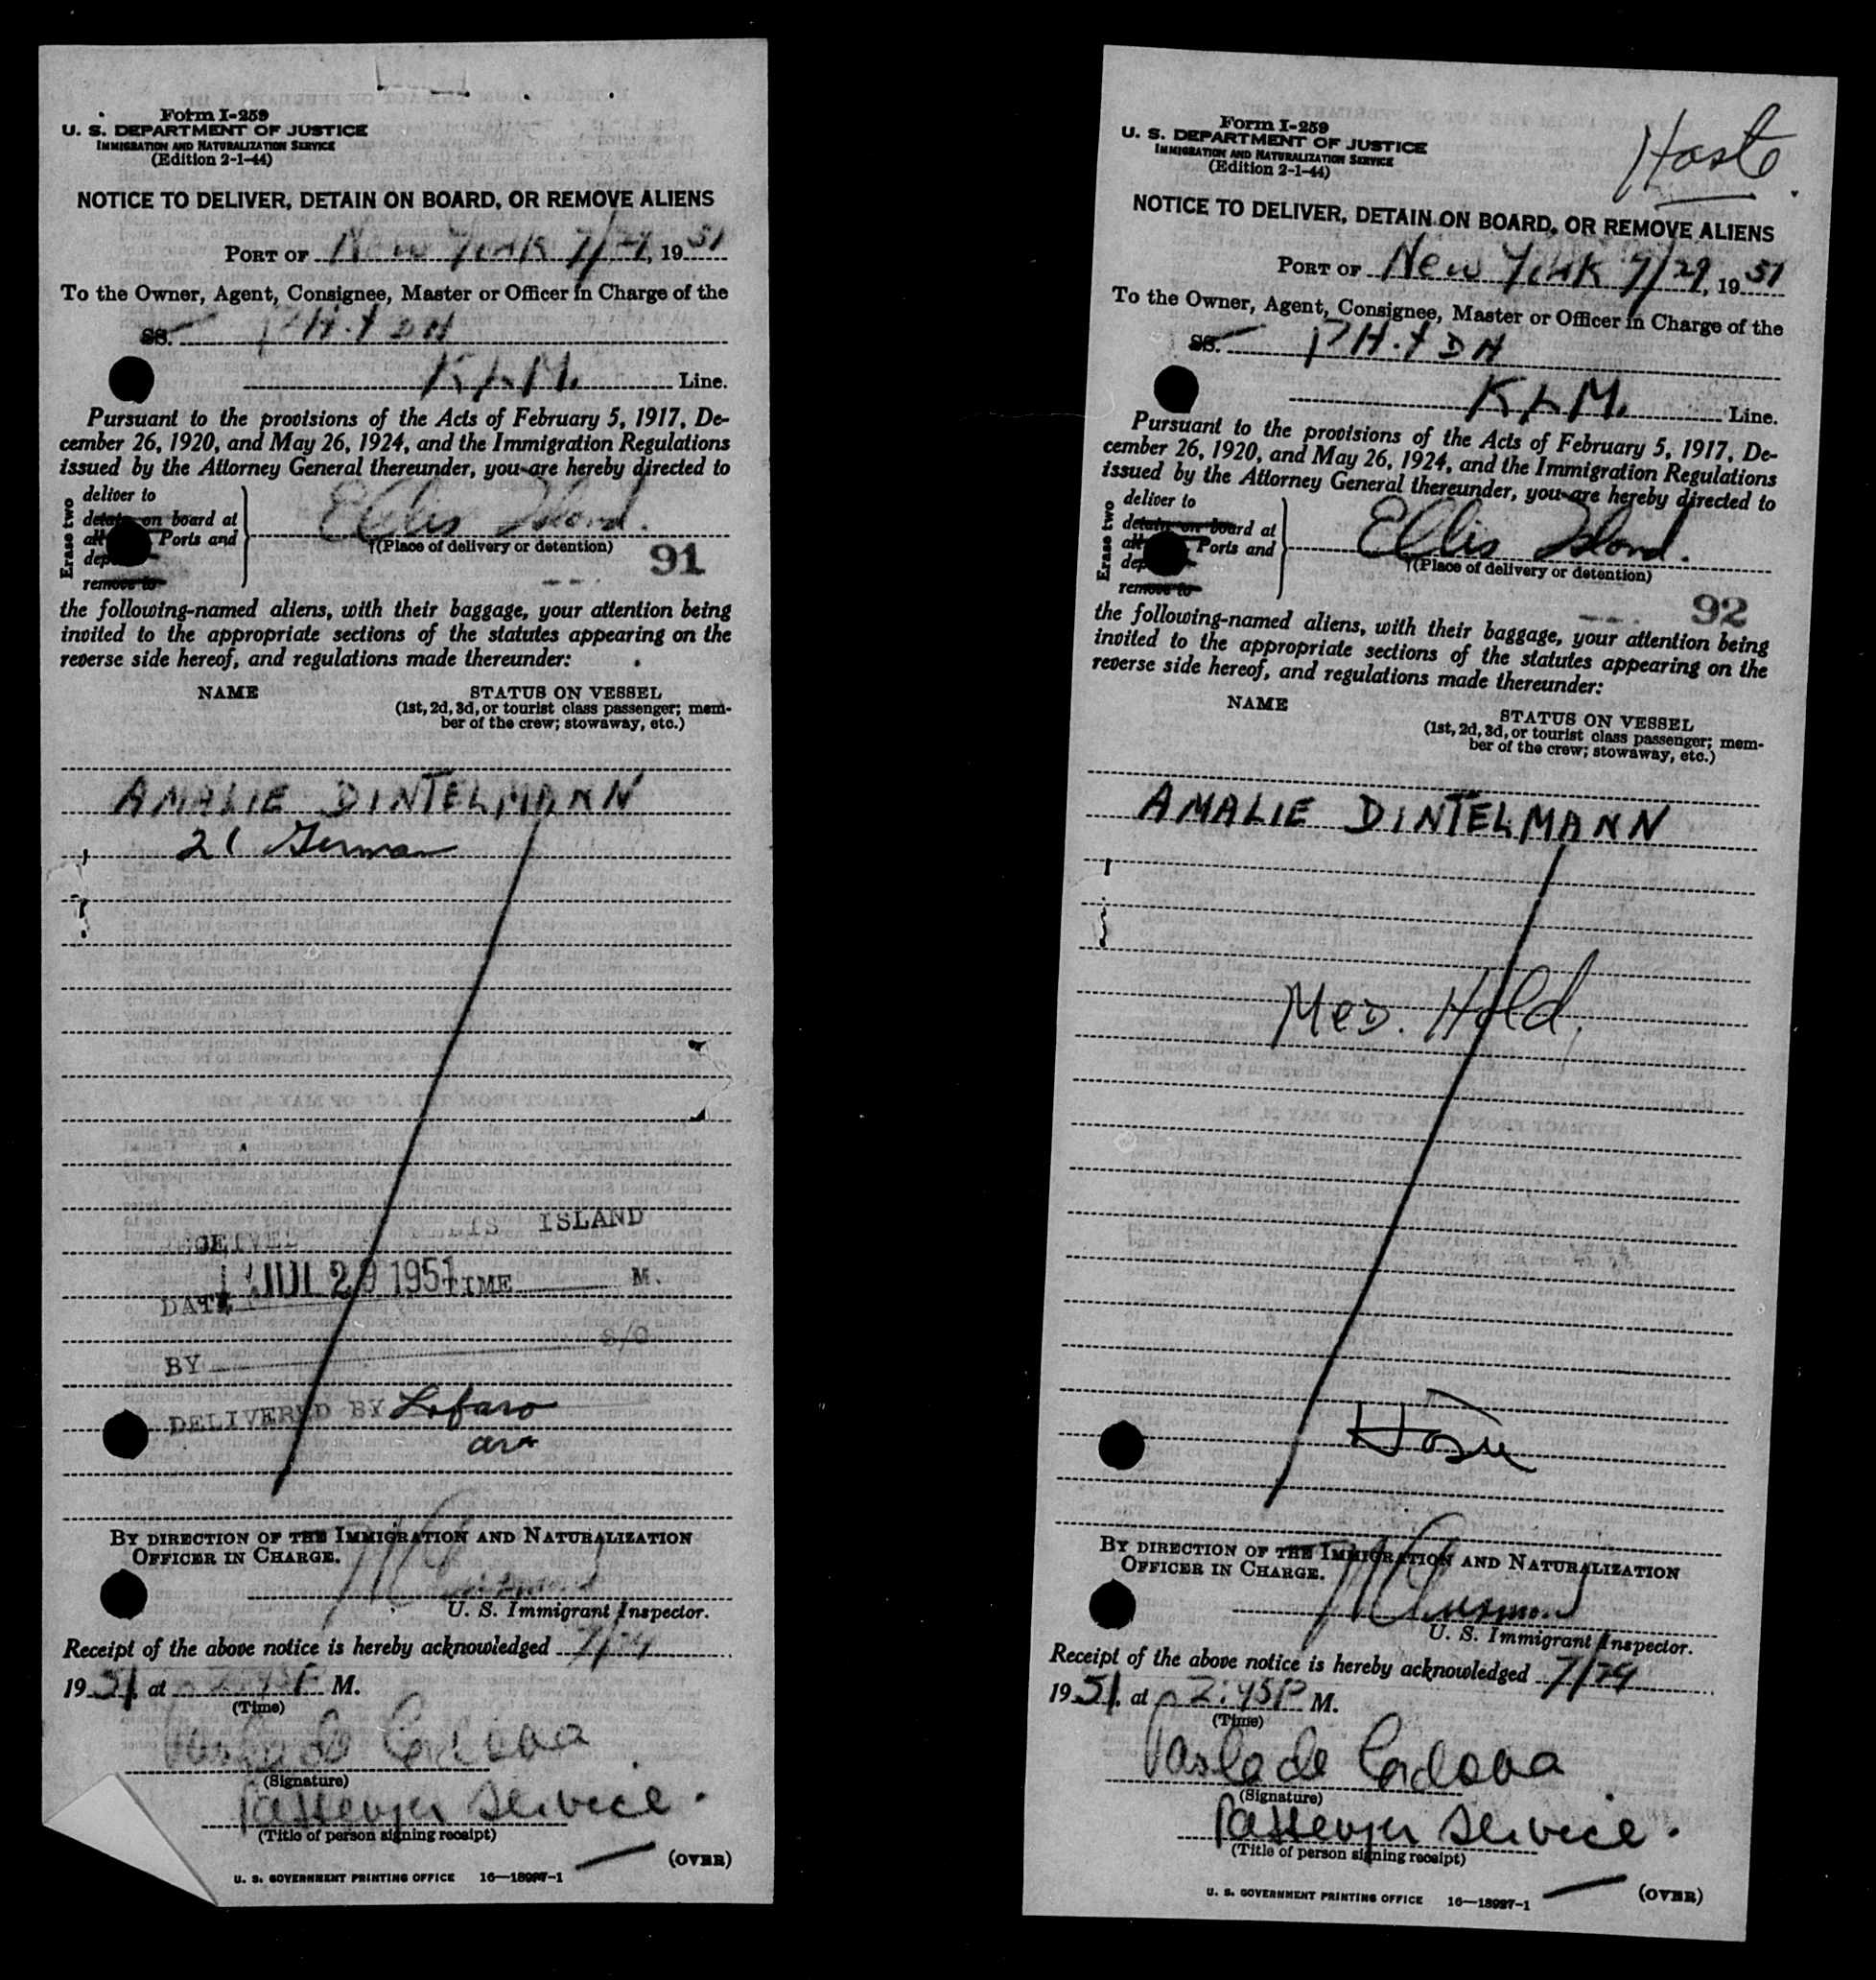 Form I-259
U. S. DEPARTMENT OF JUSTICE
IMMIGRATION AND NATURALIZATION SERVICE
(Edition 2-1-44)
NOTICE TO DELIVER, DETAIN ON BOARD, OR REMOVE ALIENS
PORT OF New York 7/29, 1951
To the Owner, Agent, Consignee, Master or Officer in Charge of the
SS. PH.TDH
KLM. Line.
Pursuant to the provisions of the Acts of February 5, 1917, De-
cember 26, 1920, and May 26, 1924, and the Immigration Regulations
issued by the Attorney General thereunder, you are hereby directed to
Erase two
deliver to
detain on board at
all Ports and
remove to
Ellis Island.
(Place of delivery or detention)
91
the following-named aliens, with their baggage, your attention being
invited to the appropriate sections of the statutes appearing on the
reverse side hereof, and regulations made thereunder:
NAME STATUS ON VESSEL
(1st, 2d, 3d, or tourist class passenger; mem-
ber of the crew; stowaway, etc.)
AMALIE DINTELMANN
21 German
IS ISLAND
DATE JUL 29 1951 TIME M.
BY S/O
DELIVERED BY Lofaro
BY DIRECTION OF THE IMMIGRATION AND NATURALIZATION
OFFICER IN CHARGE.
U. S. Immigrant Inspector.
Receipt of the above notice is hereby acknowledged 7/29
1951, at 2:45P M.
(Time)
(Signature)
Passenger Service.
(Title of person signing receipt)
(OVER)
U. S. GOVERNMENT PRINTING OFFICE 16—18997-1
Form I-259
U. S. DEPARTMENT OF JUSTICE
IMMIGRATION AND NATURALIZATION SERVICE
(Edition 2-1-44)
NOTICE TO DELIVER, DETAIN ON BOARD, OR REMOVE ALIENS
PORT OF New York 7/29, 1951
To the Owner, Agent, Consignee, Master or Officer in Charge of the
SS. PH.TDH
KLM. Line.
Pursuant to the provisions of the Acts of February 5, 1917, De-
cember 26, 1920, and May 26, 1924, and the Immigration Regulations
issued by the Attorney General thereunder, you are hereby directed to
Erase two
deliver to
detain on board at
all Ports and
remove to
Ellis Island.
(Place of delivery or detention)
92
the following-named aliens, with their baggage, your attention being
invited to the appropriate sections of the statutes appearing on the
reverse side hereof, and regulations made thereunder:
NAME STATUS ON VESSEL
(1st, 2d, 3d, or tourist class passenger; mem-
ber of the crew; stowaway, etc.)
AMALIE DINTELMANN
Med. Hold.
BY DIRECTION OF THE IMMIGRATION AND NATURALIZATION
OFFICER IN CHARGE.
U. S. Immigrant Inspector.
Receipt of the above notice is hereby acknowledged 7/29
1951, at 2:45P M.
(Time)
(Signature)
Passenger Service.
(Title of person signing receipt)
(OVER)
U. S. GOVERNMENT PRINTING OFFICE 16—18997-1